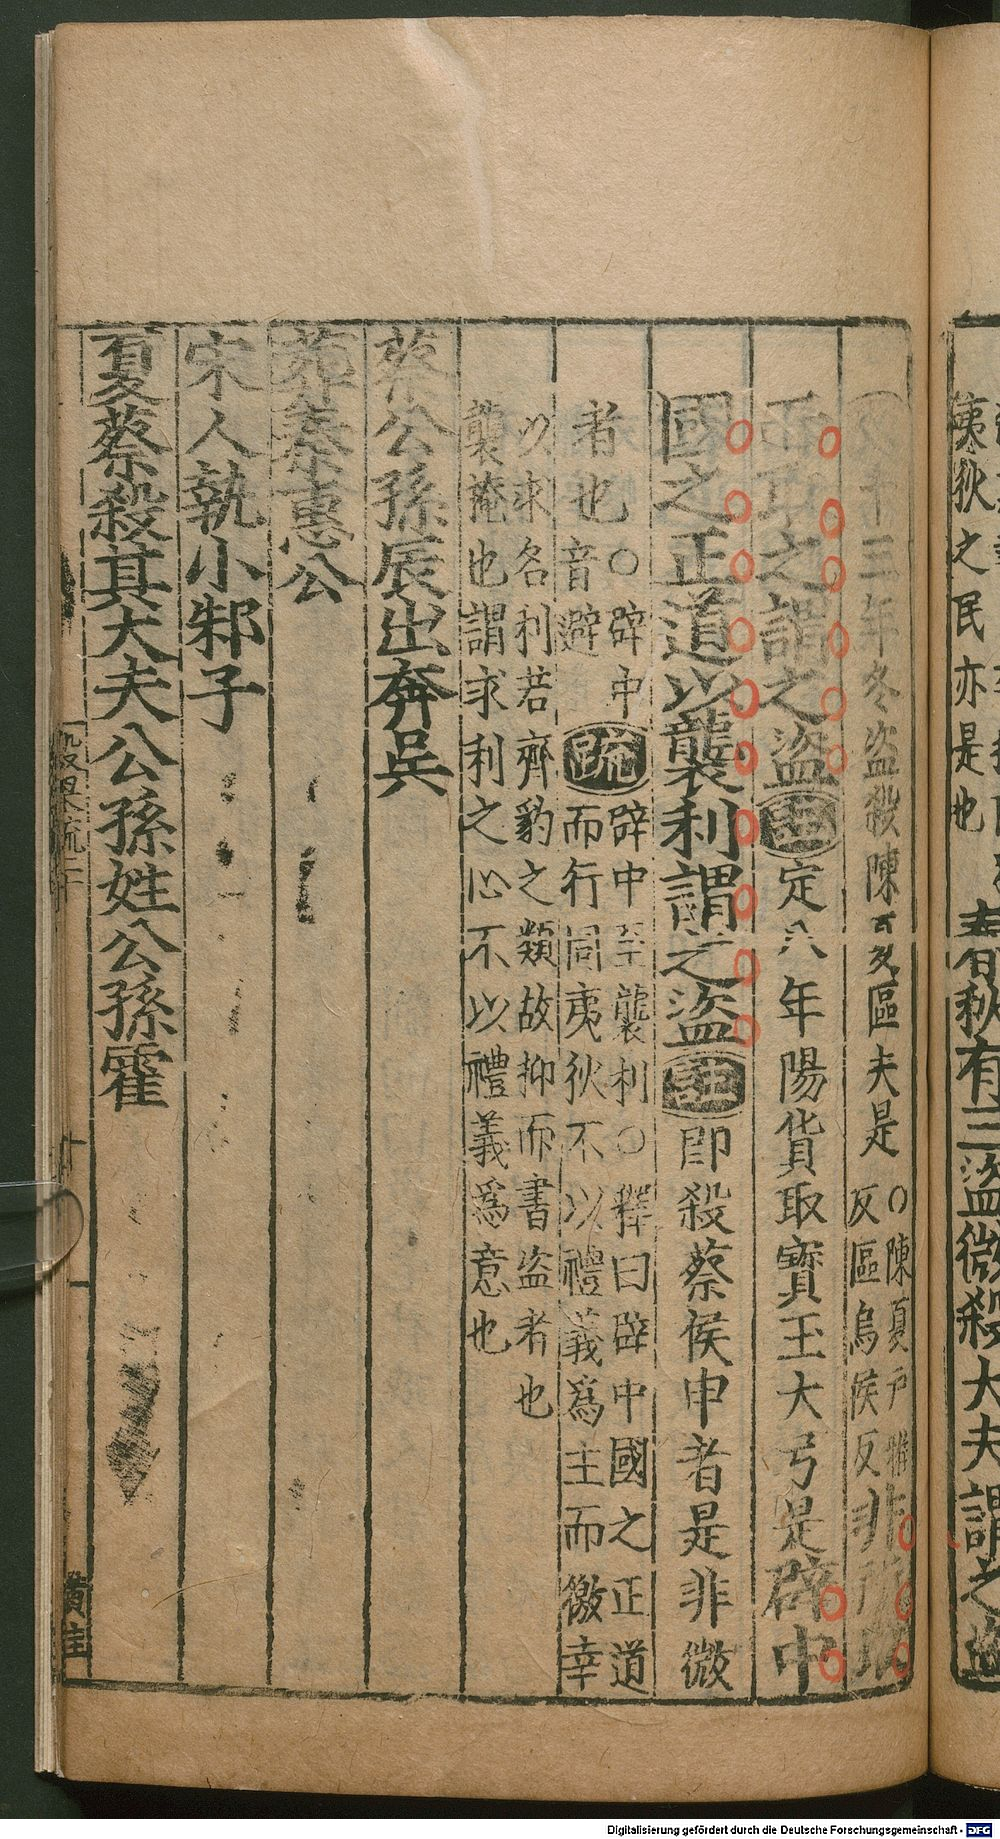 夷狄之民亦是也 春秋有三盜微殺大夫謂之盜
十三年冬盜殺陳夏區夫是 ○陳夏戶雅反區烏侯反 非所取
而取之謂之盜 註 定八年陽貨取寶玉大弓是 辟中
國之正道以襲利謂之盜 註 即殺蔡侯申者是非微
者也 ○辟中音避 疏 辟中至襲利○釋曰辟中國之正道
而行同夷狄不以禮義爲主而徼幸
以求名利若齊豹之類故抑而書盜者也
襲掩也謂求利之心不以禮義爲意也
蔡公孫辰出奔吳
葬秦惠公
宋人執小邾子
夏蔡殺其大夫公孫姓公孫霍
穀梁疏二十
十一
Digitalisierung gefördert durch die Deutsche Forschungsgemeinschaft - DFG